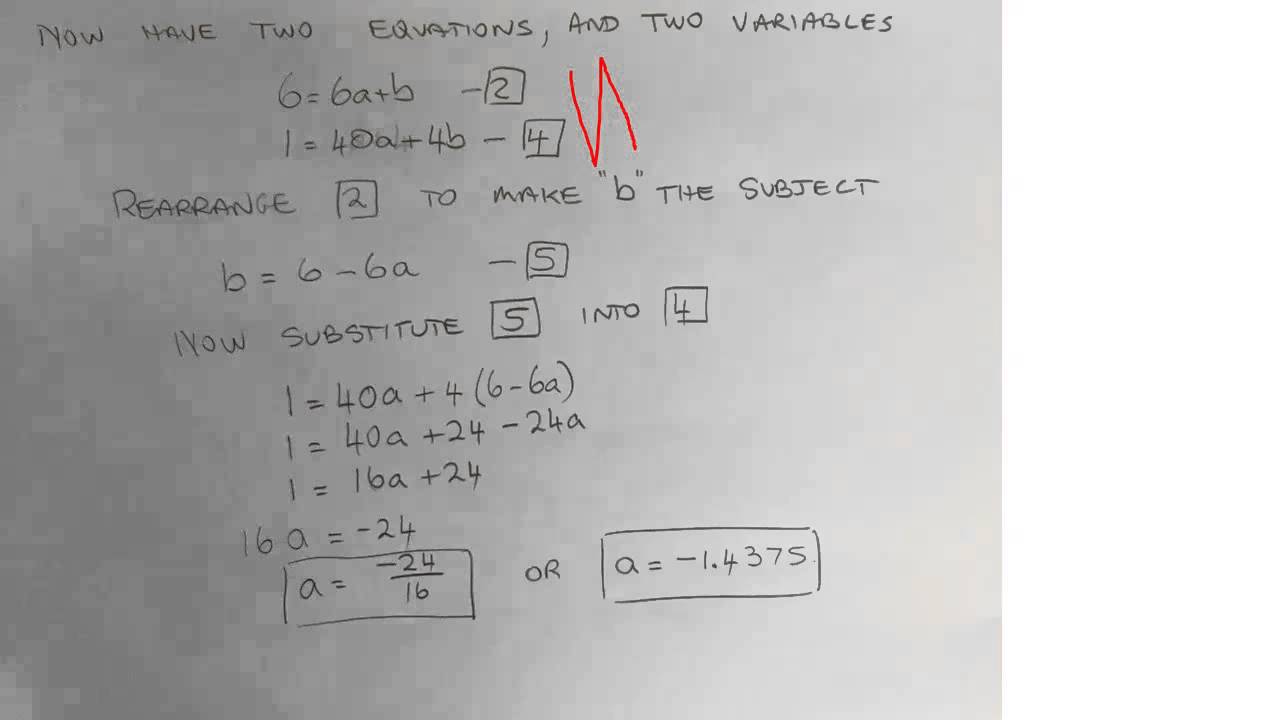 NOW HAVE TWO EQUATIONS, AND TWO VARIABLES
6 = 6a + b - 2
1 = 40a + 4b - 4
REARRANGE 2 TO MAKE "b" THE SUBJECT
b = 6 - 6a - 5
NOW SUBSTITUTE 5 INTO 4
1 = 40a + 4 (6 - 6a)
1 = 40a + 24 - 24a
1 = 16a + 24
16a = -24
a = -24/16 OR a = -1.4375